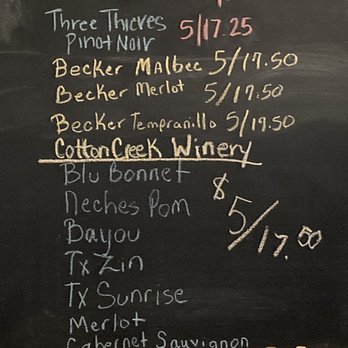 Three Thieves 5/17.25
Pinot Noir
Becker Malbec 5/17.50
Becker Merlot 5/17.50
Becker Tempranillo 5/19.50
Cotton Creek Winery
Blu Bonnet
Neches Pom $5/17.50
Bayou
Tx Zin
Tx Sunrise
Merlot
Cabernet Sauvignon